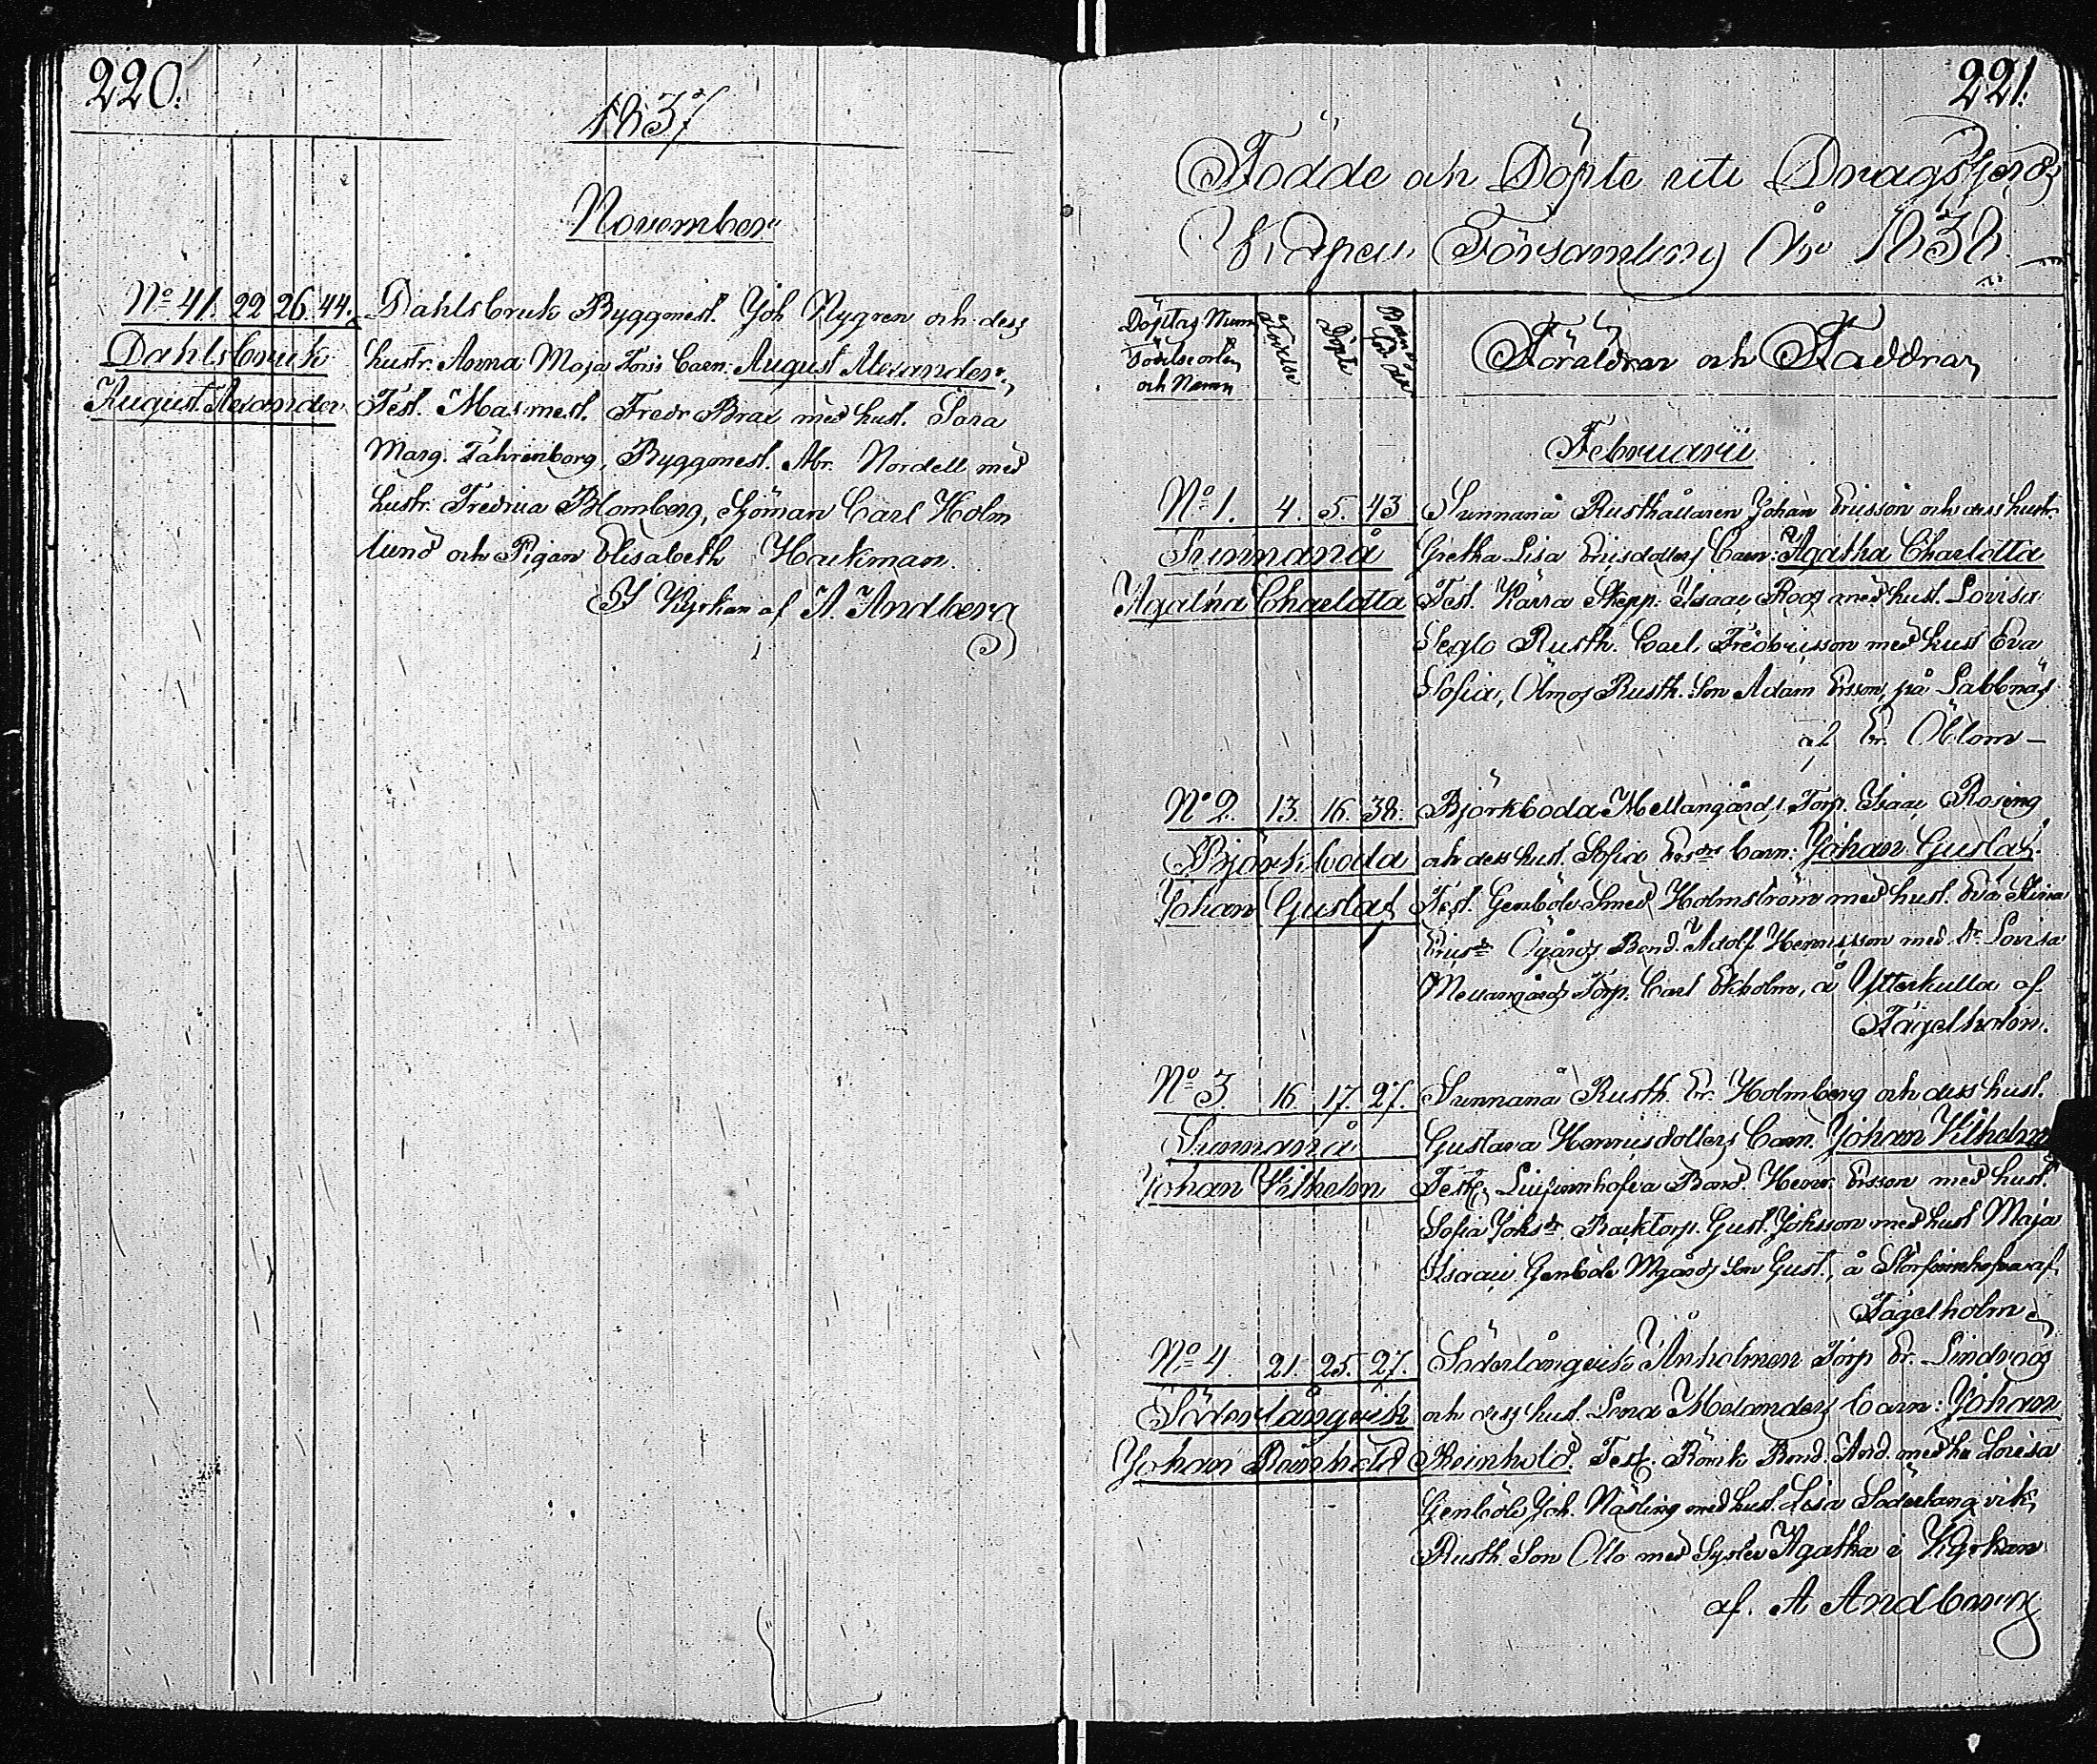 220.
1837
November
No 41. 22 26. 44.
Dahlsbruk
August Alexander
Dahlsbruk Byggmest. Joh Nygren och dess
hustr. Anna Maja Barn: August Alexander.
Test. Masmest. Fredr Brax med hust. Sara
Marg. Fährenborg, Byggmest. Abr. Nordell med
hustr. Fredrica Blomberg, Sjöman Carl Holm
lund och Pigan Elisabeth Hackman.
I Kyrkan af A. Andberg
221.
Födde och Döpte uti Dragsfjerds
Capell Församling År 1838.
Döptas Num
födelseorten
och Namn
Födelse
Döpte
Föräldrar och Faddrar
Februarii
No 1. 4. 5. 43
Sunnanå
Agatha Charlotta
Sunnanå Rusthållaren Johan Ericsson och dess hustr.
Gretha Lisa Ericsdotters Barn: Agatha Charlotta
Test. Kärra Skepp. Isaac Roos med hust. Lovisa
Rusth. Carl Fredricsson med hust Eva
Sofia, Ölmos Rusth. Son Adam Ersson, på Labbnäs
af Er. Öblom
No 2. 13. 16. 38.
Björkboda
Johan Gustaf
Björkboda Mellangårds Torp. Isaac Rosing
och dess hust. Sofia Ersdr Barn: Johan Gustaf.
Test. Genböle Smed Holmström med hust. Eva Stina
Ericsdr Ögårds Bond. Adolf Henricsson med dr Lovisa
Mellangårds Torp. Carl Ekholm, å Ytterkulla af
Fagelholm.
No 3. 16. 17. 27.
Sunnanå
Johan Vilhelm
Sunnanå Rusth. Er. Holmberg och dess hust.
Gustava Henricsdotters Barn. Johan Vilhelm
Test. Bond. Henr. Ersson med hust.
Sofia Johsdr. Backtorp. Gust. Johsson med hust Maja
Isaac Genböle Mgårds Son Gust., å Storfinnhofva af
Fagelholm
No 4. 21. 25. 27.
Söderlångvik
Johan Reinhold
Söderlångvik Anholmen Torp Er. Lindroos
och dess hust. Lena Melanders Barn: Johan
Reinhold. Test. Rövik Bond. And. med hu Lovisa
Genböle Joh. Näsling med hust. Lisa Söderlångvik,
Rusth. Son Otto med Syster Agatha i Kyrkan
af. A Andberg